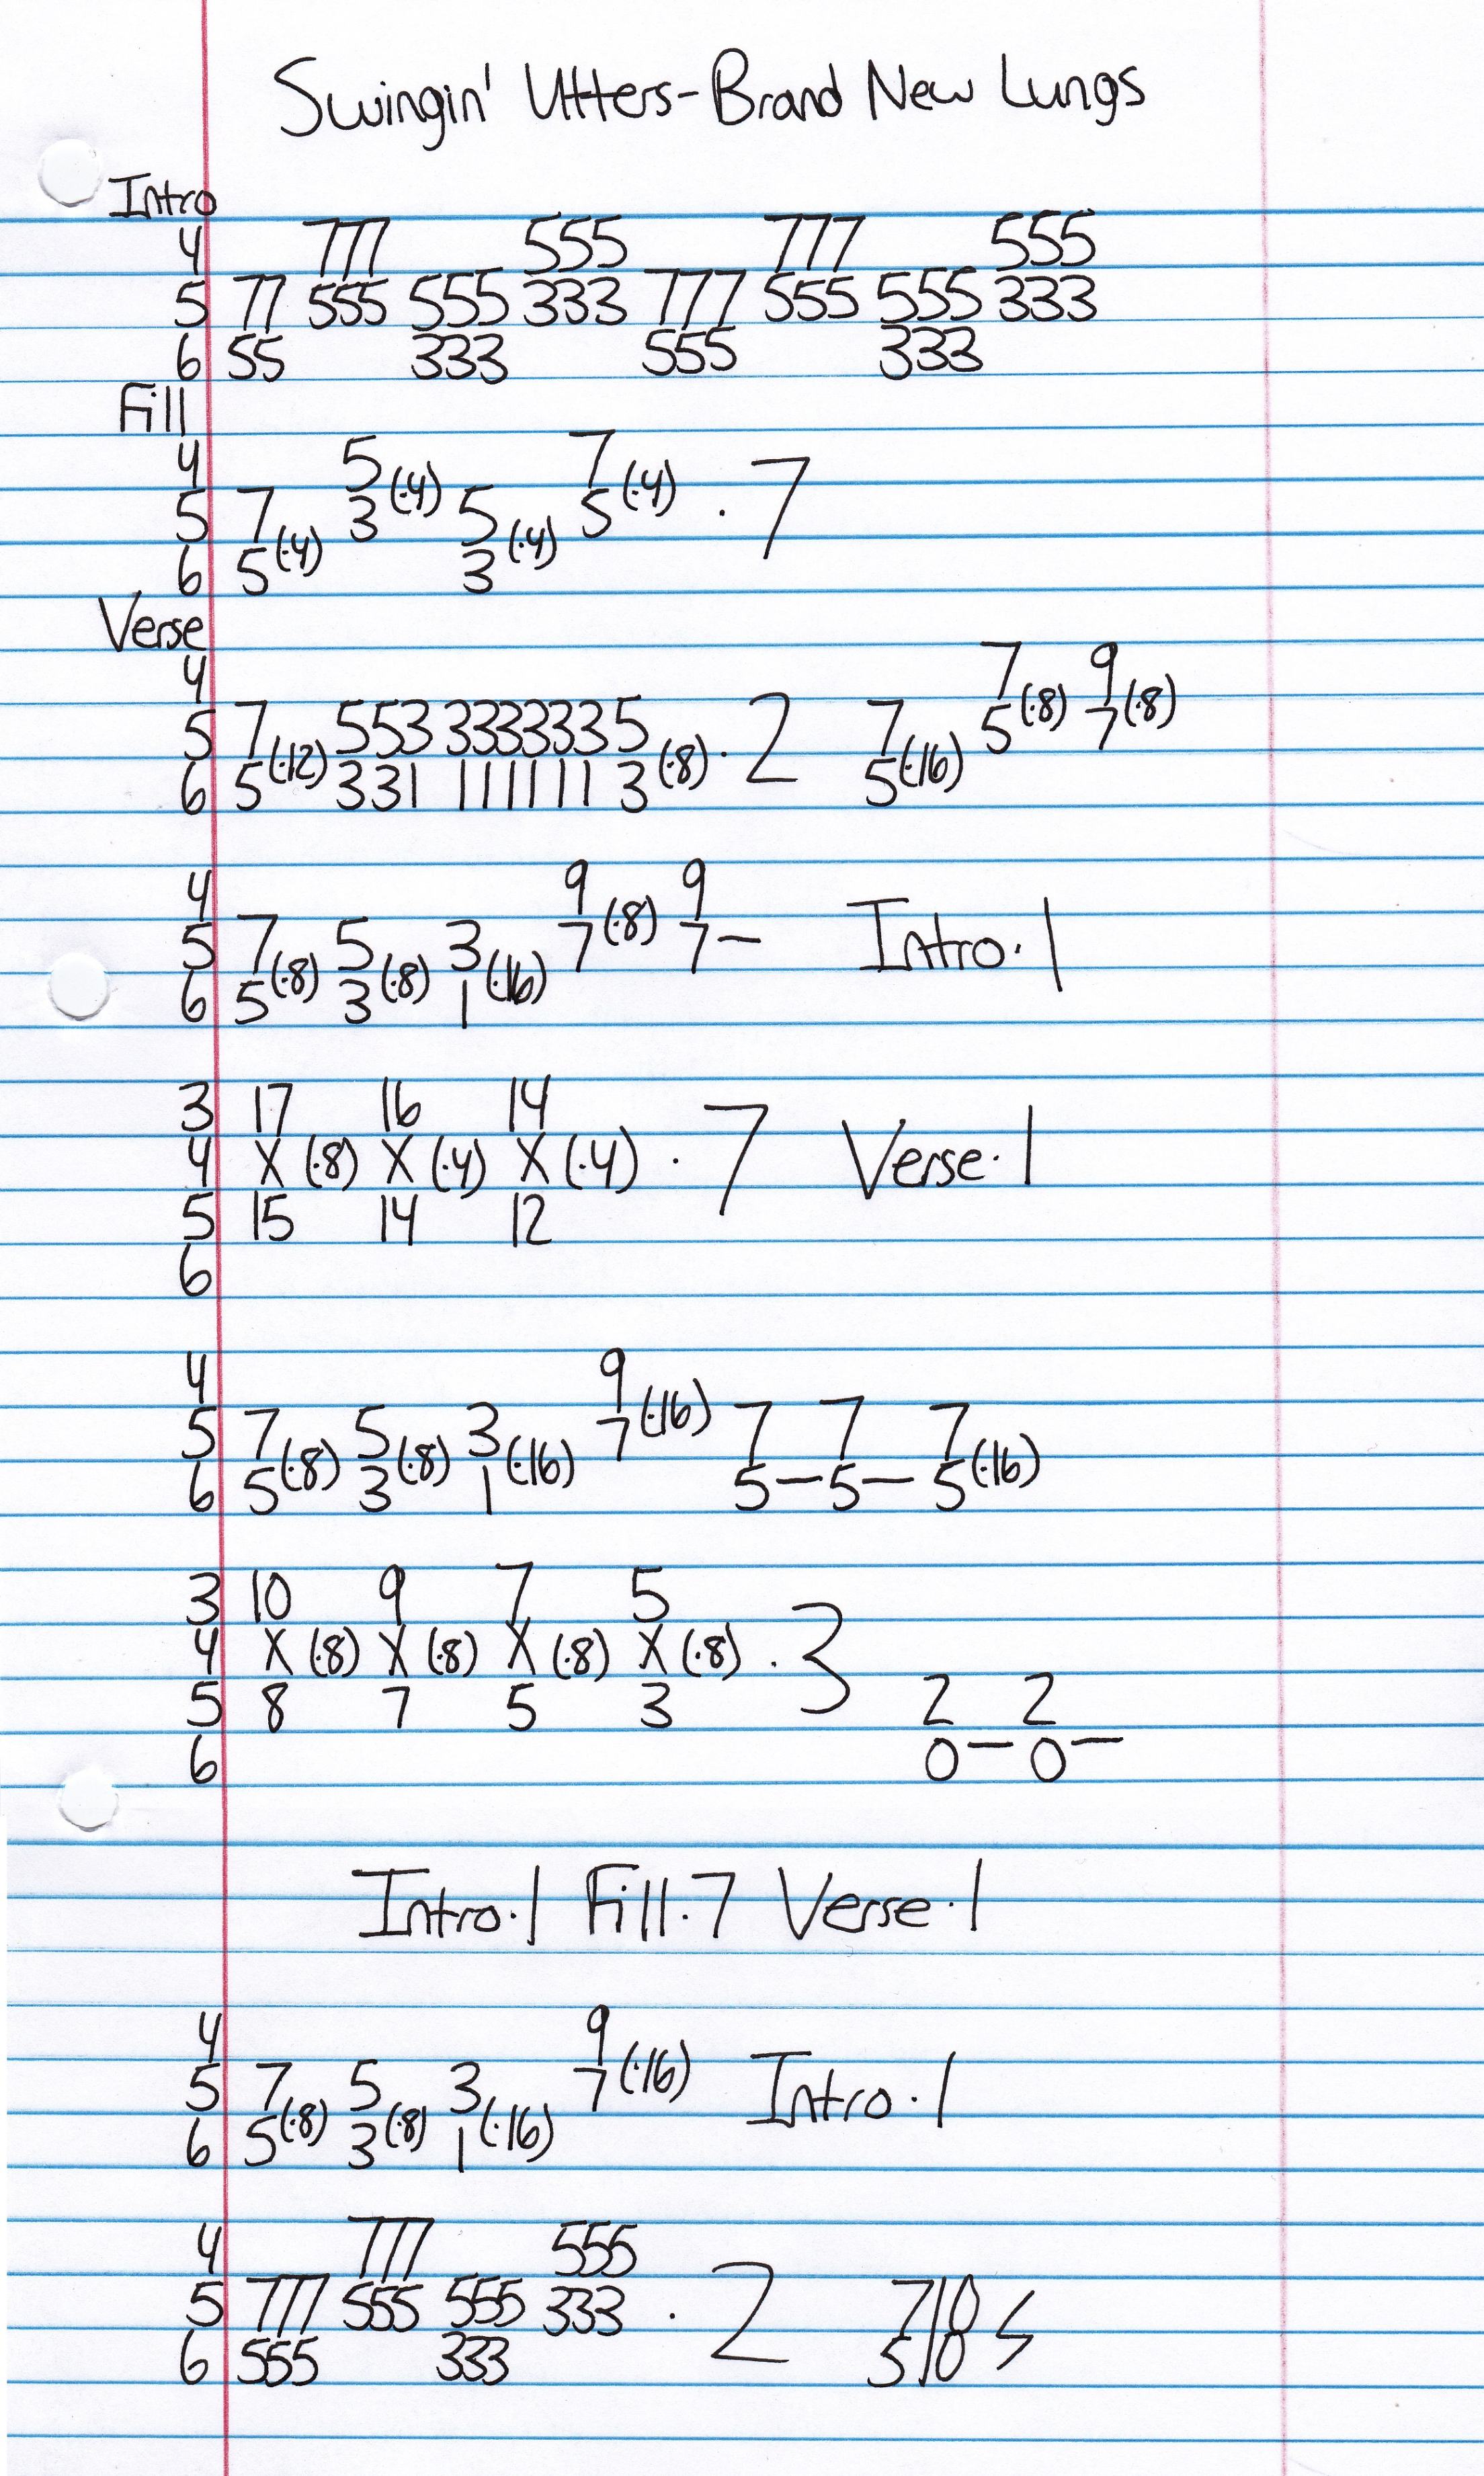 Swingin' Utters-Brand New Lungs
Intro
4 777 555 777 555
5 77 555 555 333 777 555 555 333
6 55 333 555 333
Fill
4 5 7
5 7 3 (·4) 5 5 (·4) · 7
6 5 (·4) 3 (·4)
Verse
4 7 9
5 7 553 3333335 · 2 7 5 (·8) 7 (·8)
6 5 (·12) 331 111111 3 (·8) 5 (·16)
4 9 9
5 7 5 3 7 (·8) 7 – Intro·1
6 5 (·8) 3 (·8) 1 (·16)
3 17 16 14
4 X (·8) X (·4) X (·4) · 7 Verse·1
5 15 14 12
6
4 9
5 7 5 3 7 (·16) 7 7 7
6 5 (·8) 3 (·8) 1 (·16) 5 – 5 – 5 (·16)
3 10 9 7 5
4 X (·8) X (·8) X (·8) X (·8) · 3
5 8 7 5 3 2 2
6 0 – 0 –
Intro·1 Fill·7 Verse·1
4 9
5 7 5 3 7 (·16) Intro·1
6 5 (·8) 3 (·8) 1 (·16)
4 777 555
5 777 555 555 333 · 2 7/0
6 555 333 5/0